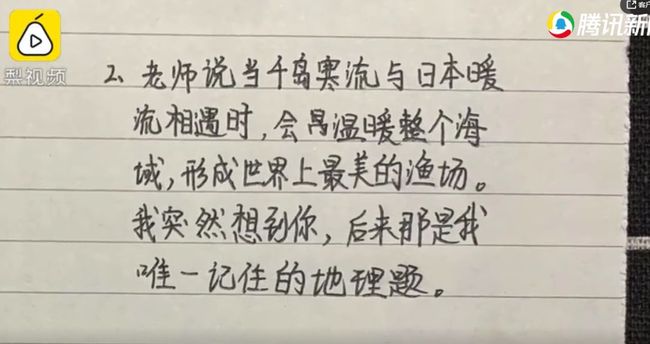 客户
梨视频
腾讯新
2、老师说当千岛寒流与日本暖
流相遇时,会温暖整个海
域,形成世界上最美的渔场。
我突然想到你,后来那是我
唯一记住的地理题。